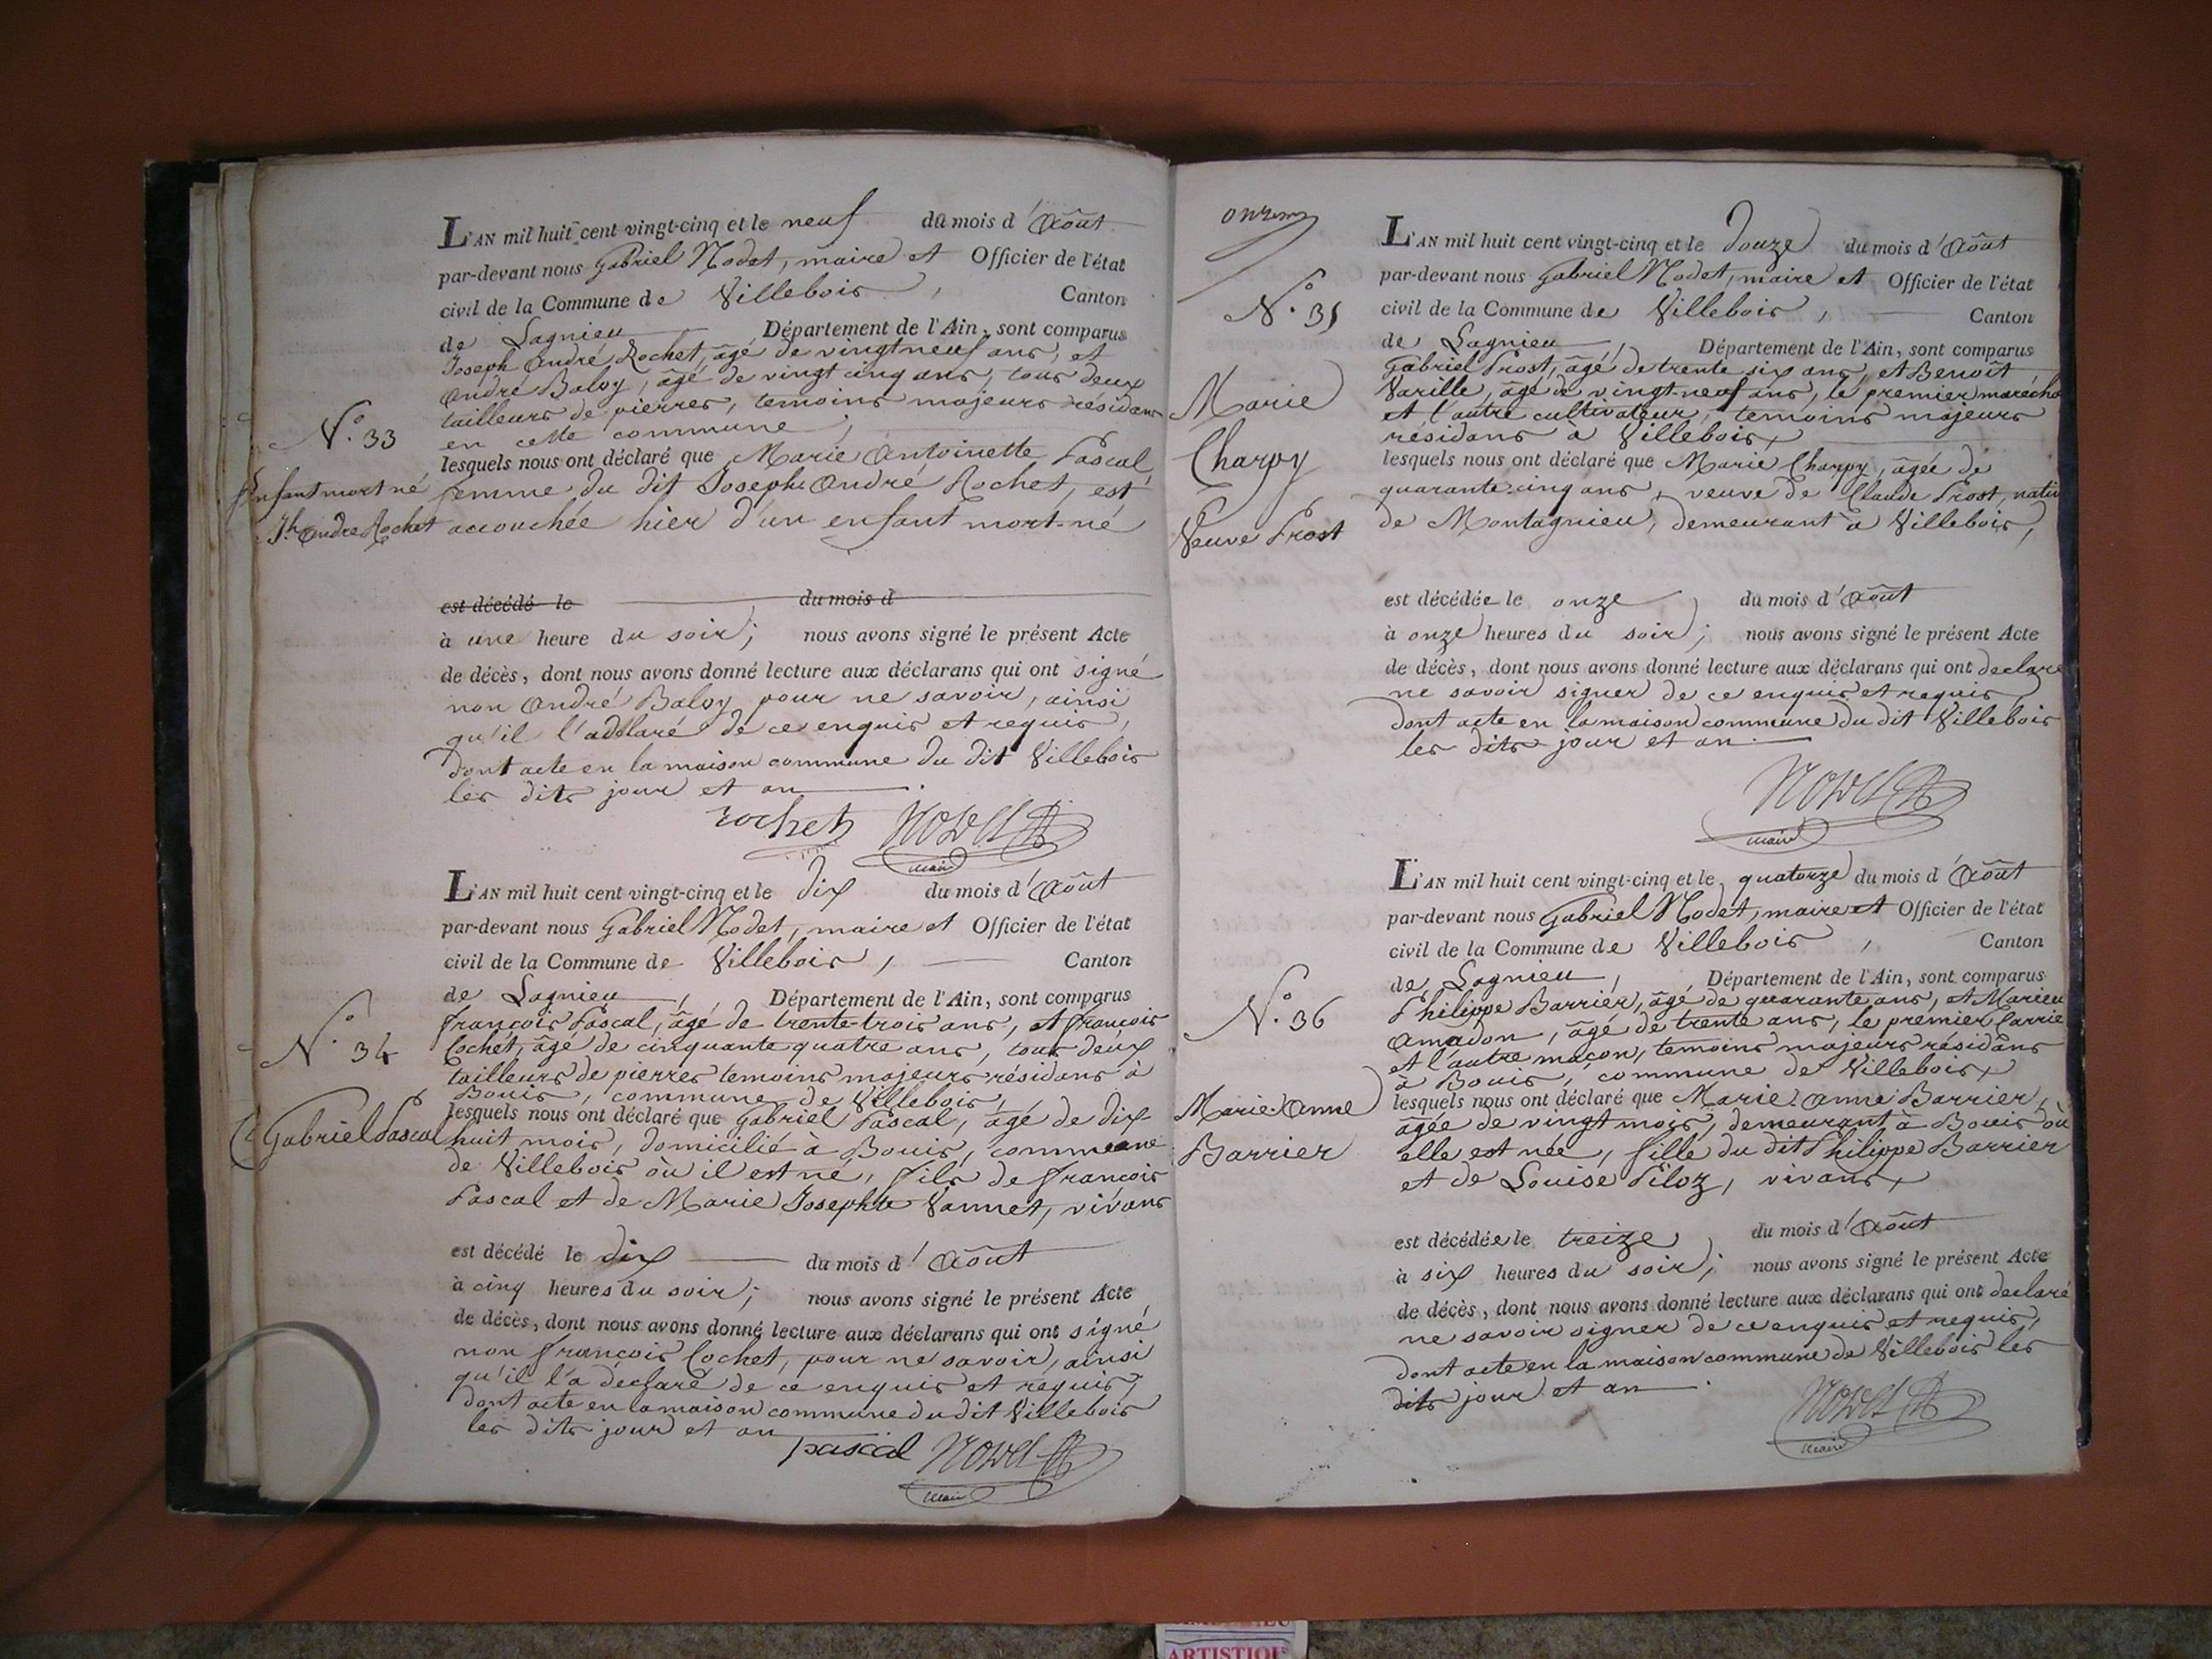 L'AN mil huit cent vingt-cinq et le neuf du mois d'Août
par-devant nous Gabriel Nodet, maire et Officier de l'état
civil de la Commune de Villebois, Canton
de Lagnieu Département de l'Ain, sont comparus
Joseph André Rochet, âgé de vingt neuf ans, et
André Baloy, âgé de vingt cinq ans, tous deux
tailleurs de pierres, temoins majeurs résidans
en cette commune,
N.° 33
lesquels nous ont déclaré que Marie Antoinette Pascal,
Enfant mort né
femme du dit Joseph André Rochet, est
Jh. André Rochet
accouchée hier d'un enfant mort-né
est décédé le du mois d
à une heure du soir; nous avons signé le présent Acte
de décès, dont nous avons donné lecture aux déclarans qui ont signé
non André Baloy pour ne savoir, ainsi
qu'il l'a déclaré de ce enquis et requis,
dont acte en la maison commune du dit Villebois
les dits jour et an.
rochet Nodet
maire
L'AN mil huit cent vingt-cinq et le dix du mois d'Août
par-devant nous Gabriel Nodet, maire et Officier de l'état
civil de la Commune de Villebois, Canton
de Lagnieu, Département de l'Ain, sont comparus
françois Pascal, âgé de trente-trois ans, et françois
Cochet, âgé de cinquante quatre ans, tous deux
N.° 34
tailleurs de pierres temoins majeurs résidans à
Bouis, commune de Villebois,
lesquels nous ont déclaré que Gabriel Pascal, âgé de dix
Gabriel Pascal
huit mois, domicilié à Bouis, commune
de Villebois où il est né, fils de françois
Pascal et de Marie Josephte Vannet, vivans
est décédé le dix du mois d'Août
à cinq heures du soir; nous avons signé le présent Acte
de décès, dont nous avons donné lecture aux déclarans qui ont signé
non françois Cochet, pour ne savoir, ainsi
qu'il l'a déclaré de ce enquis et requis,
dont acte en la maison commune du dit Villebois
les dits jour et an
pascal Nodet
maire
L'AN mil huit cent vingt-cinq et le douze du mois d'Août
par-devant nous Gabriel Nodet, maire et Officier de l'état
N.° 35
civil de la Commune de Villebois, Canton
de Lagnieu, Département de l'Ain, sont comparus
Gabriel Prost, âgé de trente six ans, et Benoît
Varille, âgé de vingt-neuf ans, le premier marécha
et l'autre cultivateur, temoins majeurs
résidans à Villebois,
Marie
Charpy
Veuve Prost
lesquels nous ont déclaré que Marie Charpy, âgée de
quarante-cinq ans, veuve de Claude Prost, nativ
de Montagnieu, demeurant à Villebois,
est décédée le onze du mois d'Août
à onze heures du soir; nous avons signé le présent Acte
de décès, dont nous avons donné lecture aux déclarans qui ont declaré
ne savoir signer de ce enquis et requis,
dont acte en la maison commune du dit Villebois
les dits jour et an.
Nodet
maire
L'AN mil huit cent vingt-cinq et le quatorze du mois d'Août
par-devant nous Gabriel Nodet, maire et Officier de l'état
civil de la Commune de Villebois, Canton
de Lagnieu, Département de l'Ain, sont comparus
N.° 36
Philippe Barrier, âgé de quarante ans, et Marieu
Amadon, âgé de trente ans, le premier Carrie
et l'autre maçon, temoins majeurs résidans
à Bouis, commune de Villebois,
Marie-Anne
Barrier
lesquels nous ont déclaré que Marie-Anne Barrier,
âgée de vingt mois, demeurant à Bouis où
elle est née, fille du dit Philippe Barrier
et de Louise Piloz, vivans,
est décédée le treize du mois d'Août
à six heures du soir; nous avons signé le présent Acte
de décès, dont nous avons donné lecture aux déclarans qui ont declaré
ne savoir signer de ce enquis et requis,
dont acte en la maison commune de Villebois les
dits jour et an.
Nodet
maire
ARTISTIQUE